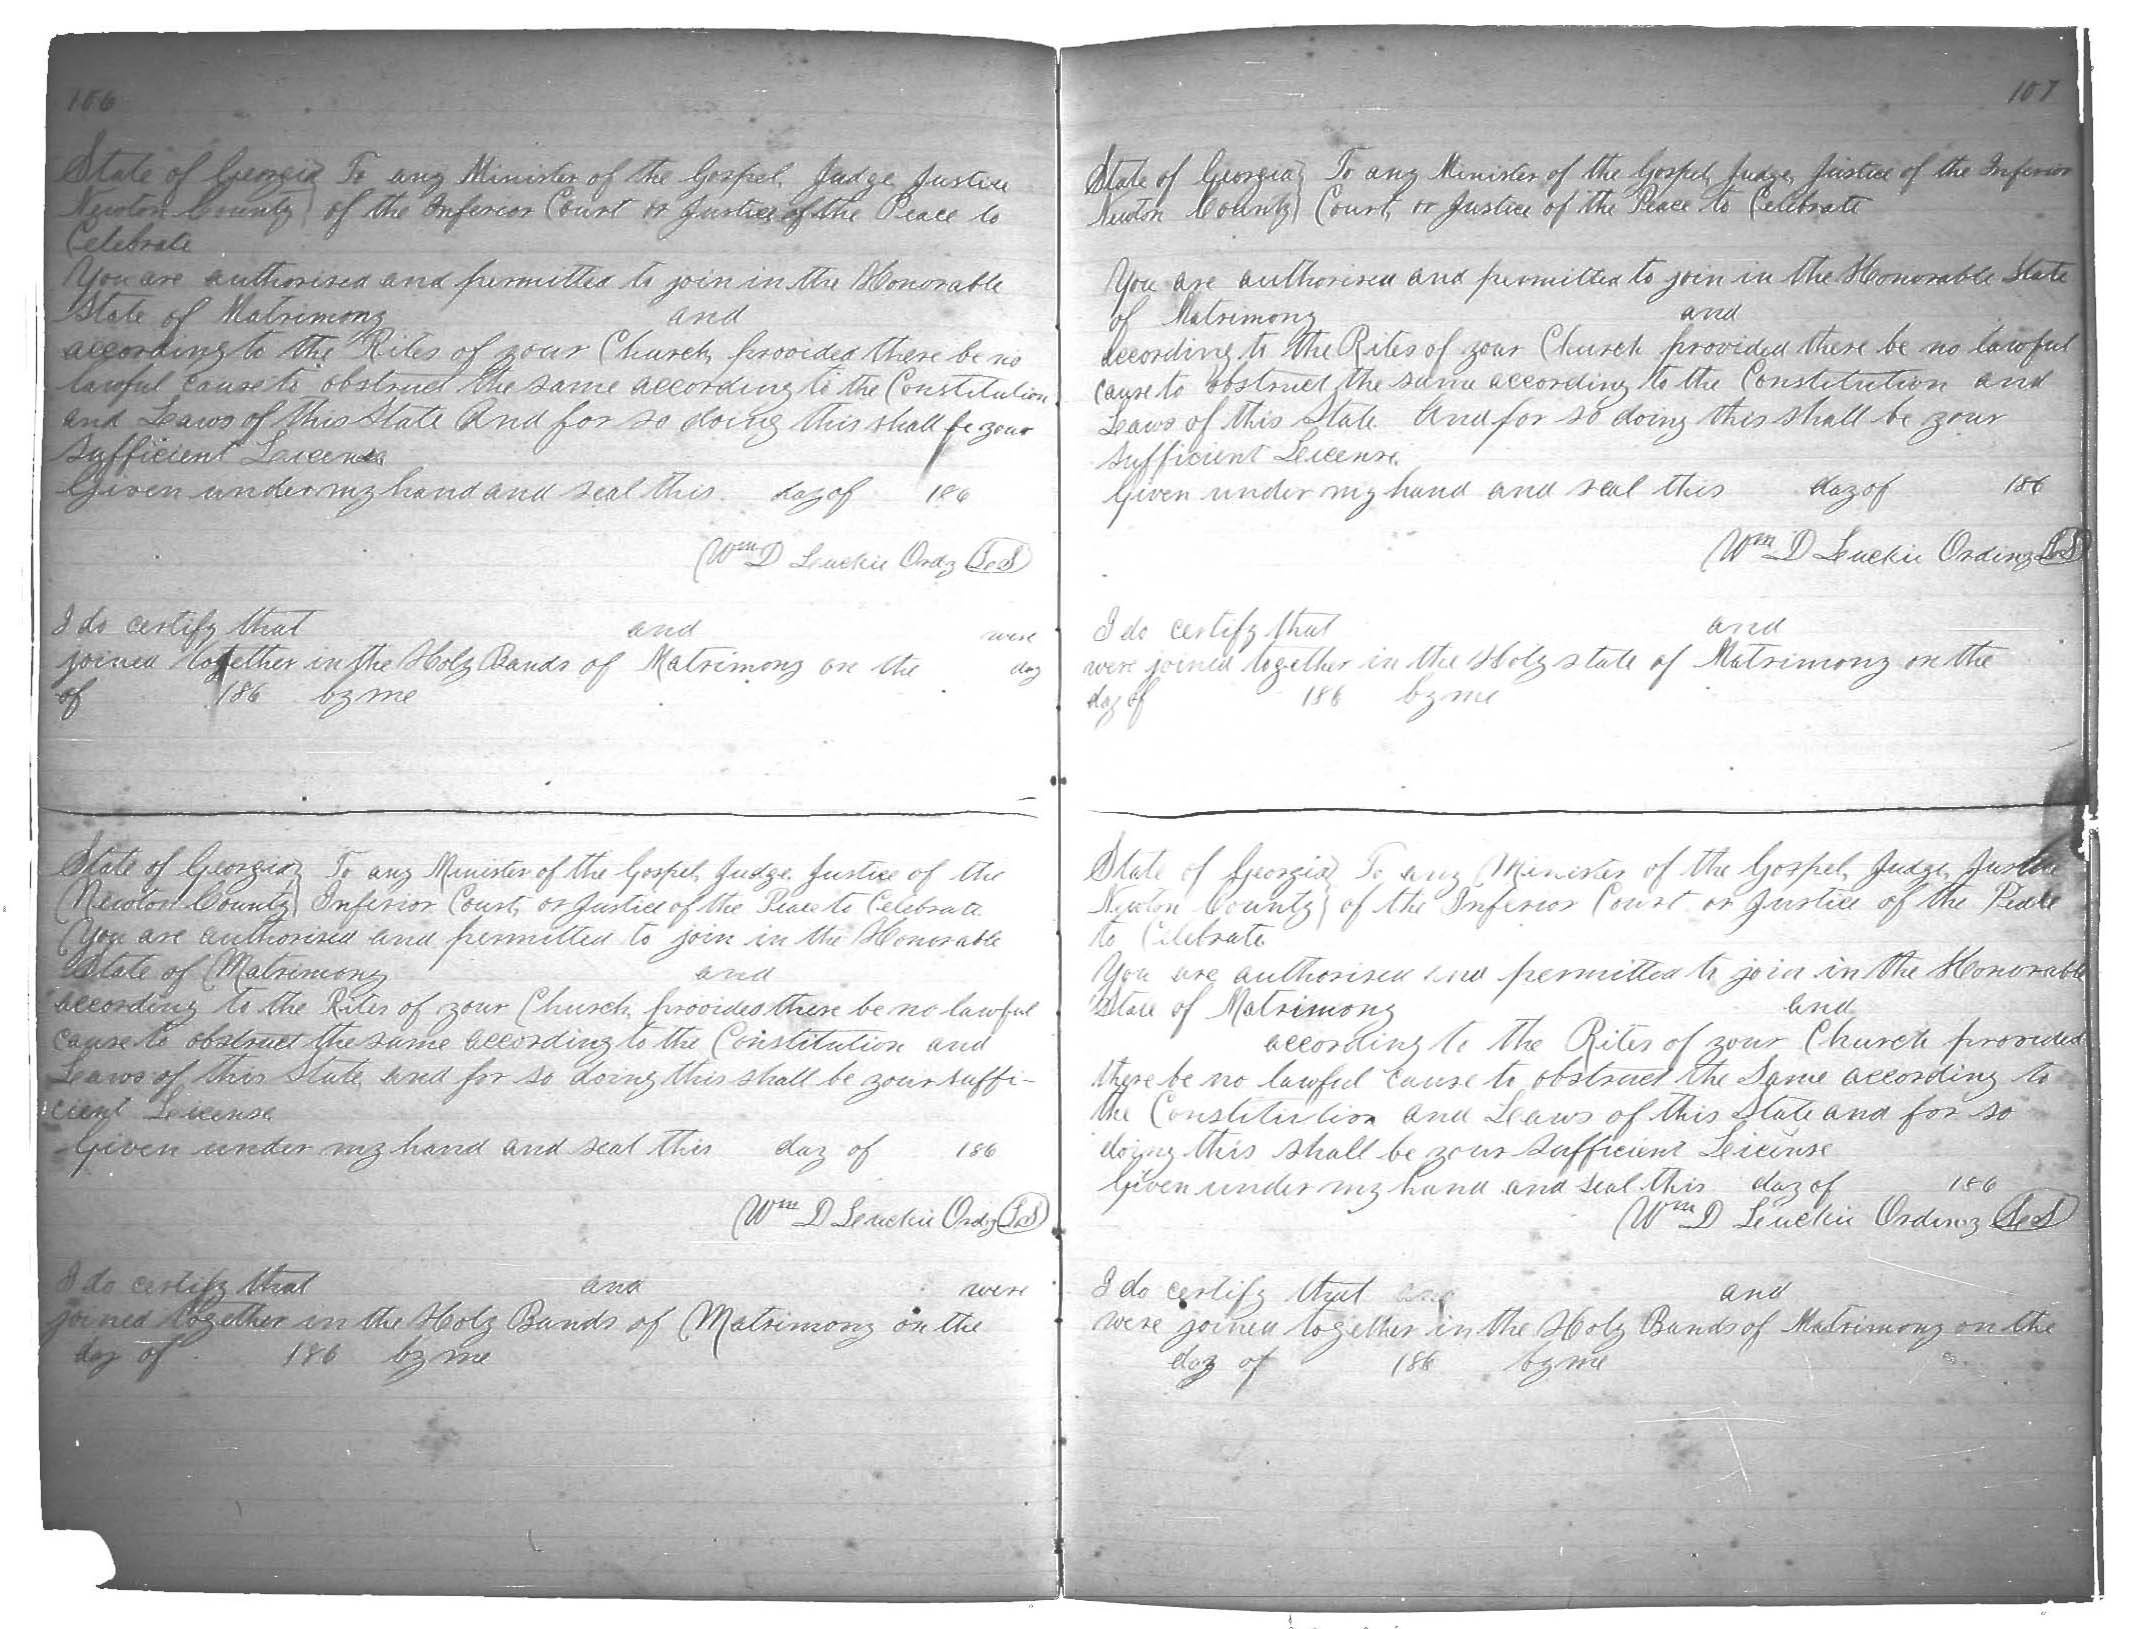 106
State of Georgia } To any Minister of the Gospel, Judge, Justice
Newton County } of the Inferior Court or Justice of the Peace to
Celebrate
You are authorised and permitted to join in the Honorable
State of Matrimony and
according to the Rites of your Church, provided there be no
lawful cause to obstruct the same according to the Constitution
and Laws of this State And for so doing this shall be your
sufficient License
Given under my hand and seal this day of 186
Wm D Luckie Ordy LS
I do certify that and were
joined together in the Holy Bands of Matrimony on the day
of 186 by me
State of Georgia } To any Minister of the Gospel, Judge, Justice of the
Newton County } Inferior Court, or Justice of the Peace to Celebrate
You are authorised and permitted to join in the Honorable
State of Matrimony and
according to the Rites of your Church, provided there be no lawful
cause to obstruct the same according to the Constitution and
Laws of this State, and for so doing this shall be your suffi-
cient License
Given under my hand and seal this day of 186
Wm D Luckie Ordy LS
I do certify that and were
joined together in the Holy Bands of Matrimony on the
day of 186 by me
107
State of Georgia } To any Minister of the Gospel, Judge, Justice of the Inferior
Newton County } Court, or Justice of the Peace to Celebrate
You are authorised and permitted to join in the Honorable State
of Matrimony and
according to the Rites of your Church provided there be no lawful
cause to obstruct the same according to the Constitution and
Laws of this State And for so doing this shall be your
sufficient License.
Given under my hand and seal this day of 186
Wm D Luckie Ordiny LS
I do certify that and
were joined together in the Holy state of Matrimony on the
day of 186 by me
State of Georgia } To any Minister of the Gospel, Judge, Justice
Newton County } of the Inferior Court or Justice of the Peace
to Celebrate
You are authorised and permitted to join in the Honorable
State of Matrimony and
according to the Rites of your Church provided
there be no lawful cause to obstruct the Same according to
the Constitution and Laws of this State and for so
doing this shall be your sufficient License
Given under my hand and seal this day of 186
Wm D Luckie Ordiny LS
I do certify that and and
were joined together in the Holy Bands of Matrimony on the
day of 186 by me